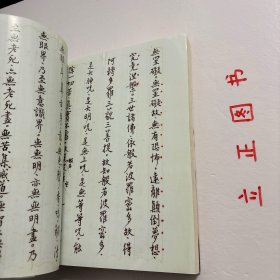 無罣礙故無有恐怖遠離顛倒夢想
究竟涅槃三世諸佛依般若波羅蜜多故得
阿耨多羅三藐三菩提故知般若波羅蜜多
是大神咒是大明咒是無上咒是無等等咒能
無眼界乃至無意識界無無明亦無無明盡乃
至無老死亦無老死盡無苦集滅道無
立正图书